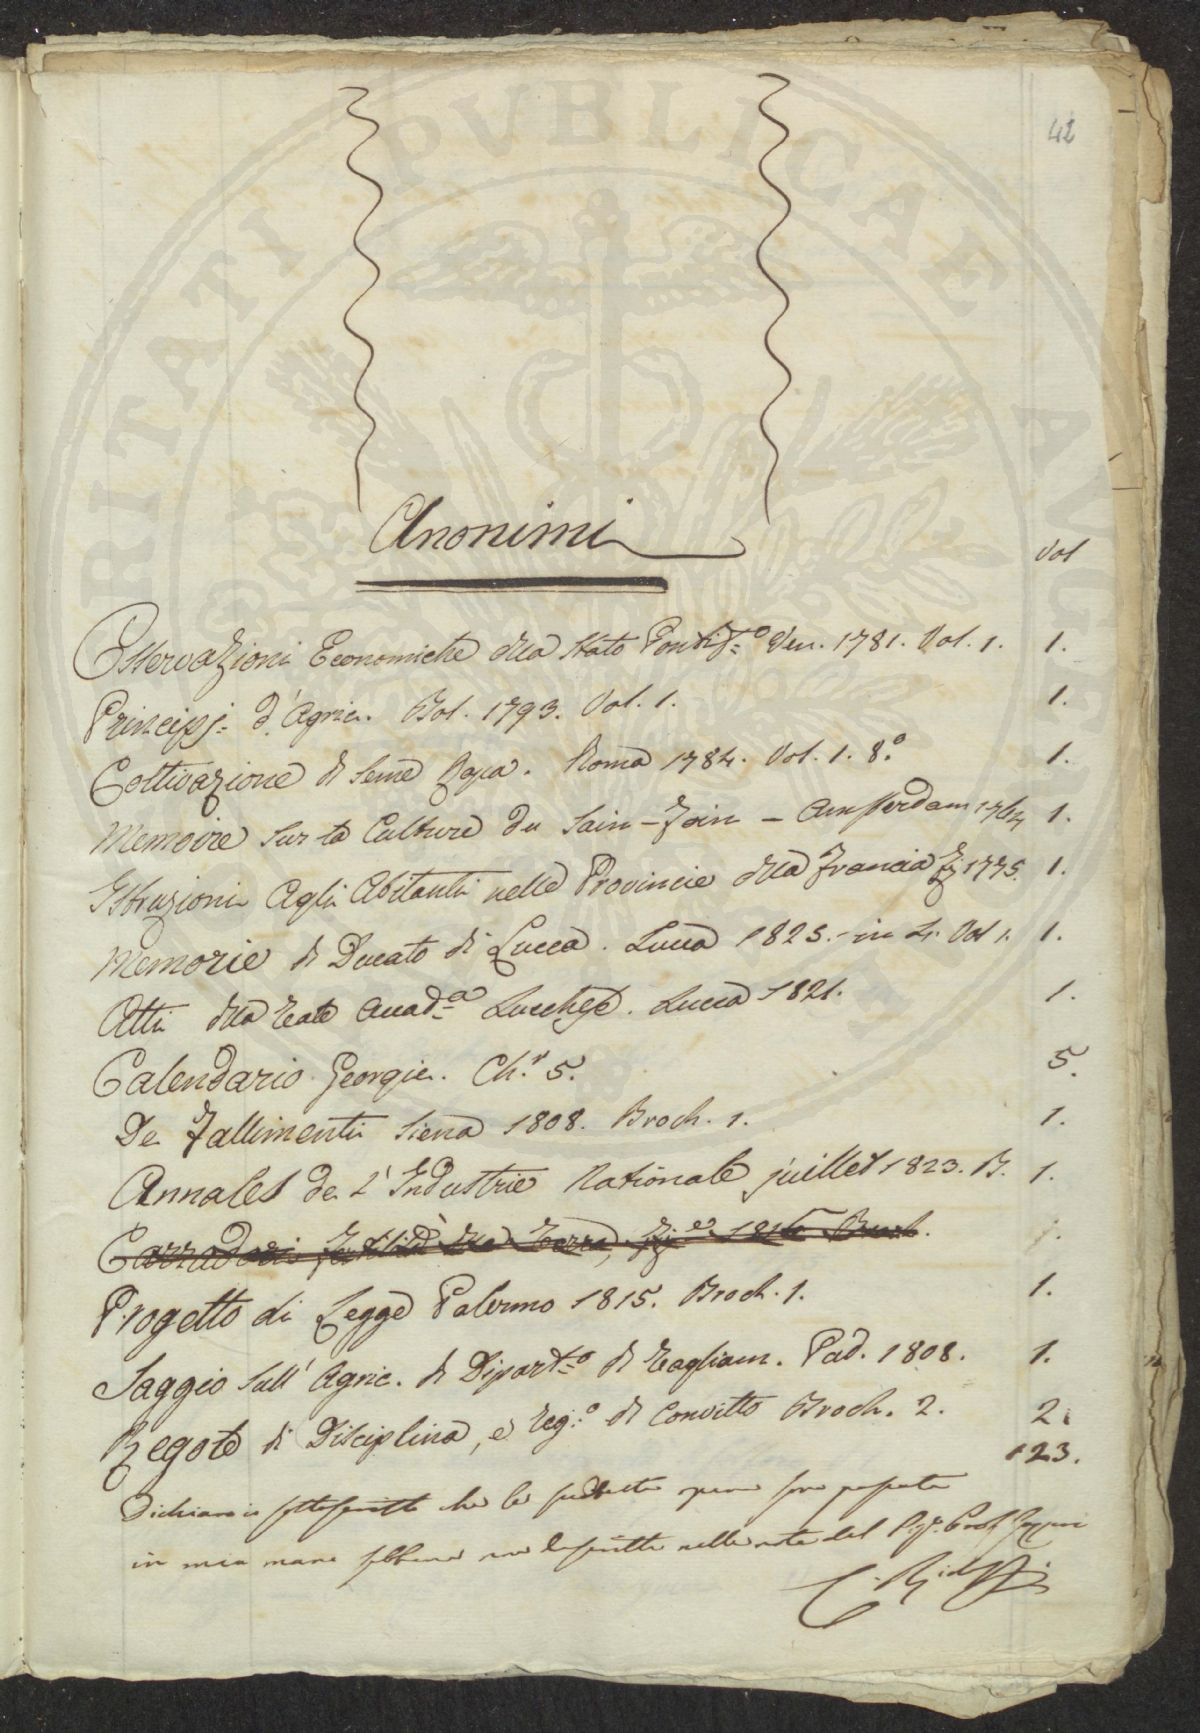 42
Anonimi
Vol
Osservazioni Economiche dello Stato Pontif.o Ven. 1781. Vol. 1. 1.
Principj d'Agric. Bol. 1793. Vol. 1. 1.
Coltivazione di Seme Rapa. Roma 1784. Vol. 1. 8.o 1.
Memoire sur la Culture du Sain-Foin - Amsterdam 1764 1.
Istruzioni Agli Abitanti nelle Provincie della Francia 1775. 1.
Memorie di Ducato di Lucca. Lucca 1823. in 4. Vol 1. 1.
Atti della Reale Accad.a Lucchese. Lucca 1821. 1.
Calendario Georgic. Ch.r 5. 5.
De Fallimenti Siena 1808. Broch. 1. 1.
Annales de L'Industrie Nationale juillet 1823. B. 1.
Carradori Fertilità della Terra, 1816 Broch. 1.
Progetto di Legge Palermo 1815. Broch. 1. 1.
Saggio Sull' Agric. di Dipart.o di Tagliam. Pad. 1808. 1.
Regole di Disciplina, e Reg.o di Convitto Broch. 2. 2.
123.
Dichiaro io sottoscritto che le suddette opere sono passate
in mia mano sebbene non descritte nelle note del Prof.
C. Ridolfi
VERITATI PVBLICAE